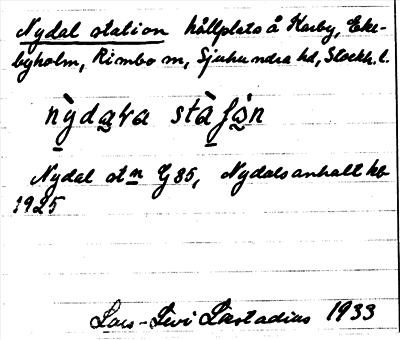 Nydal station hållplats å Karby, Eke-
byholm, Rimbo sn, Sjuhundra hd, Stockh. l.
nỳdava stàʃòn
Nydal stn G 35, Nydals anhalt kb
1925
Lars-Levi Læstadius 1933